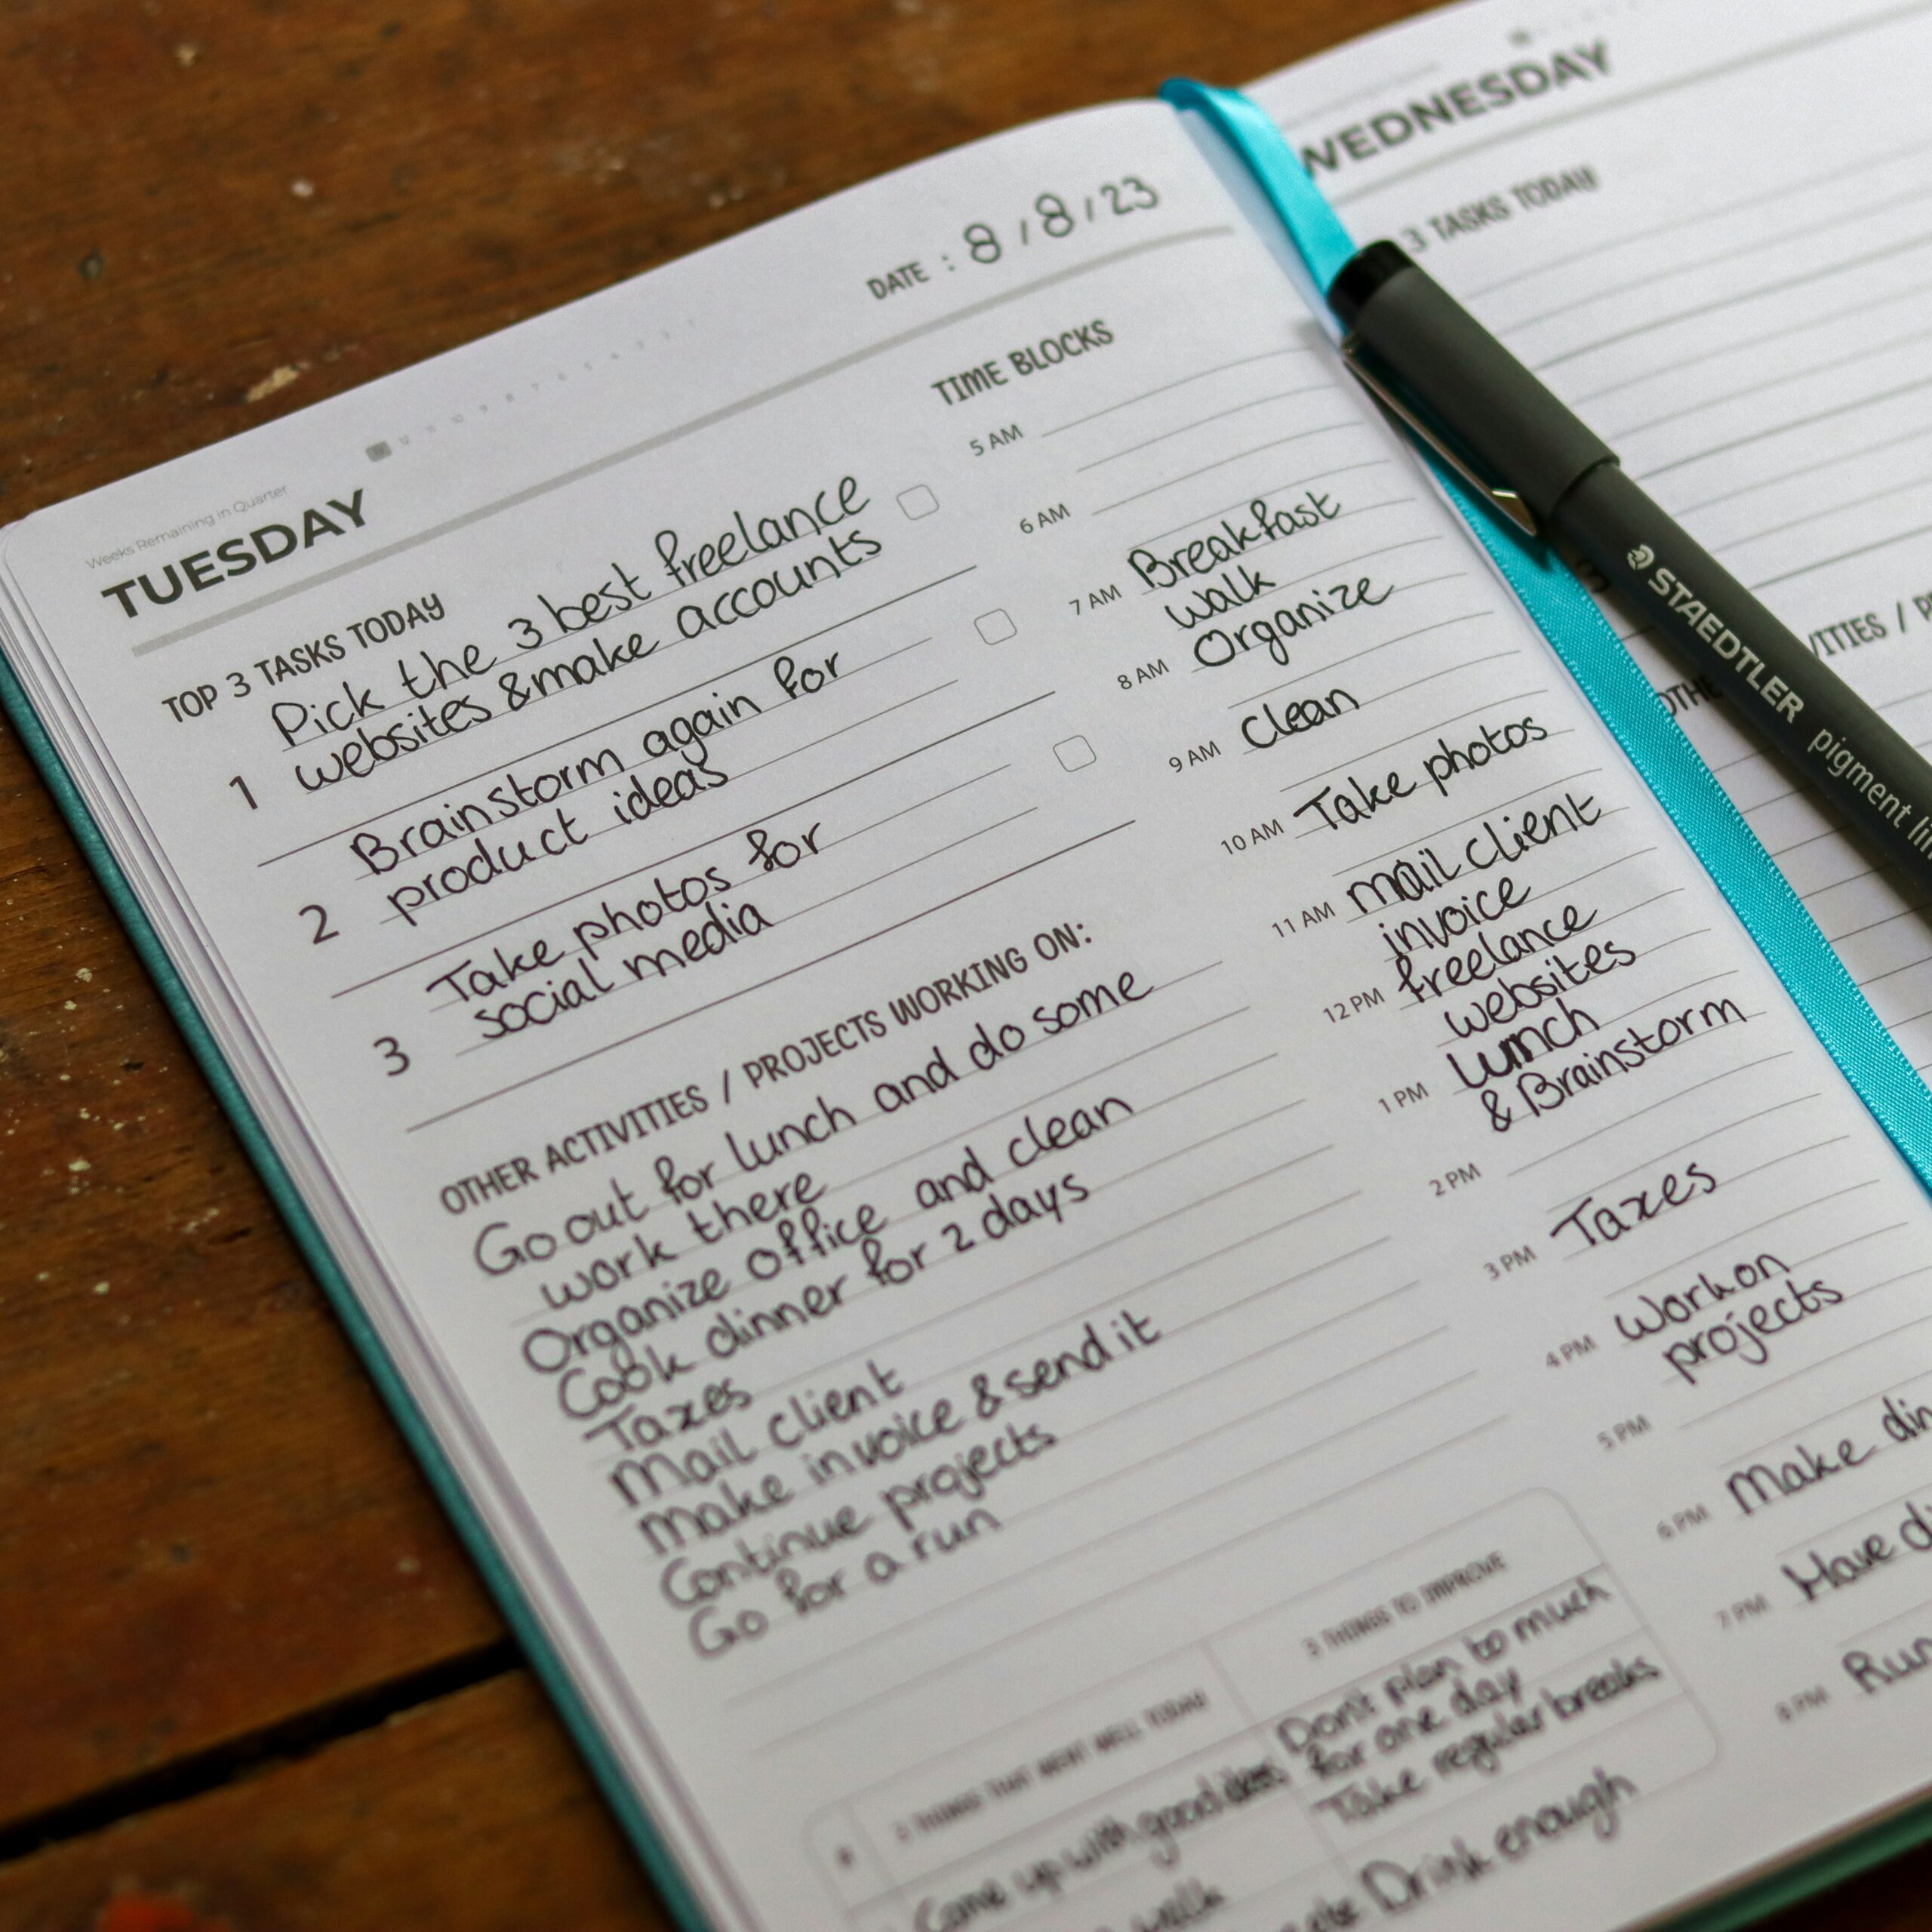 Weeks Remaining in Quarter
TUESDAY
DATE : 8 / 8 / 23
TOP 3 TASKS TODAY
1
Pick the 3 best freelance
websites & make accounts
2
Brainstorm again for
product ideas
3
Take photos for
social media
OTHER ACTIVITIES / PROJECTS WORKING ON:
Go out for lunch and do some
work there
Organize office and clean
Cook dinner for 2 days
Taxes
Mail client
Make invoice & send it
Continue projects
Go for a run
3 THINGS THAT WENT WELL TODAY
Come up with good ideas
walk
3 THINGS TO IMPROVE
Don't plan to much
for one day
Take regular breaks
Drink enough
TIME BLOCKS
5 AM
6 AM
7 AM Breakfast
walk
8 AM Organize
9 AM Clean
10 AM Take photos
11 AM mail client
invoice
12 PM freelance
websites
1 PM lunch
& Brainstorm
2 PM
3 PM Taxes
4 PM Work on
projects
5 PM
6 PM Make din
7 PM Have d
8 PM Run
WEDNESDAY
3 TASKS TODAY
STAEDTLER pigment lin